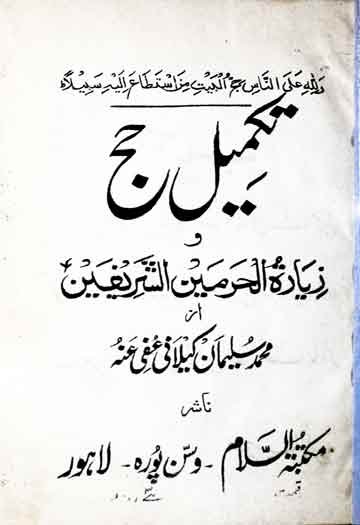 ولله على الناس حج البيت من استطاع اليه سبيلاه
تکمیل حج
و
زیارۃ الحرمین الشریفین
از
محمد سلیمان کیلانی عفی عنہ
ناشر
مکتبۃ السلام - وسن پورہ - لاہور
قیمت